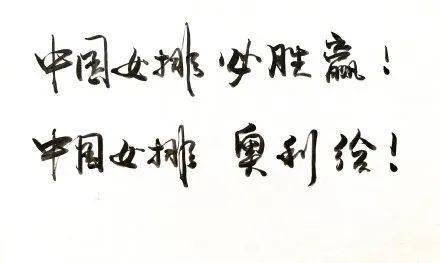 中国女排 必胜赢！
中国女排 奥利给！